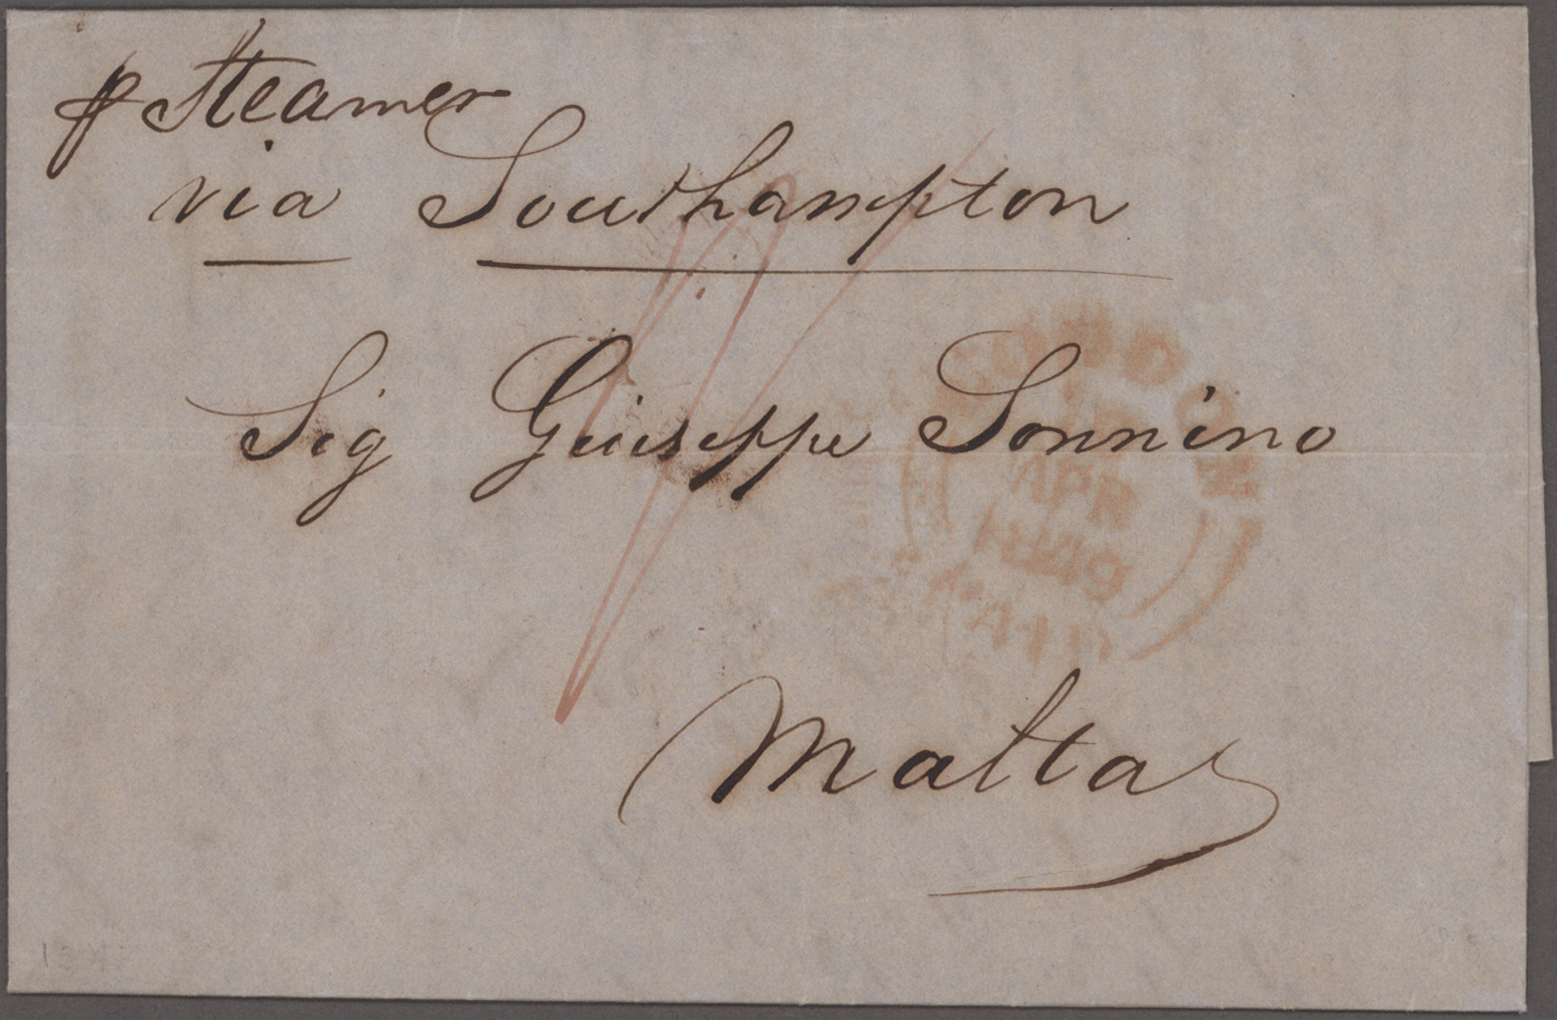 p Steamer
via Southampton
Sig Giuseppe Sonnino
Malta
LONDON
APR
PAID